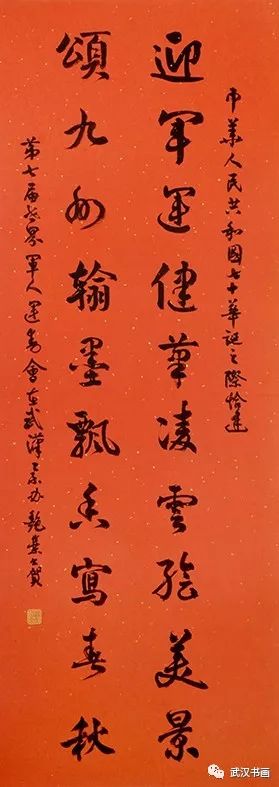 中華人民共和國七十華誕之際恰逢
迎軍運健筆凌雲繪美景
頌九州翰墨飄香寫春秋
第七届世界軍人運動會在武漢举办 賀
武汉书画